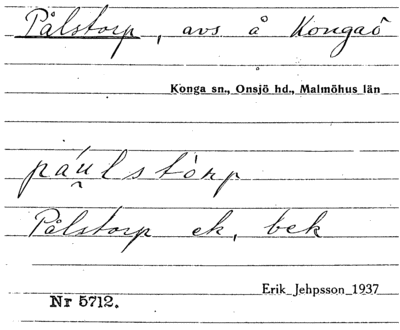 Pålstorp, avs å Kongaö
Konga sn., Onsjö hd., Malmöhus län
páu̯lstòrp
Pålstorp ek, bek
Erik Jehpsson 1937
Nr 5712.